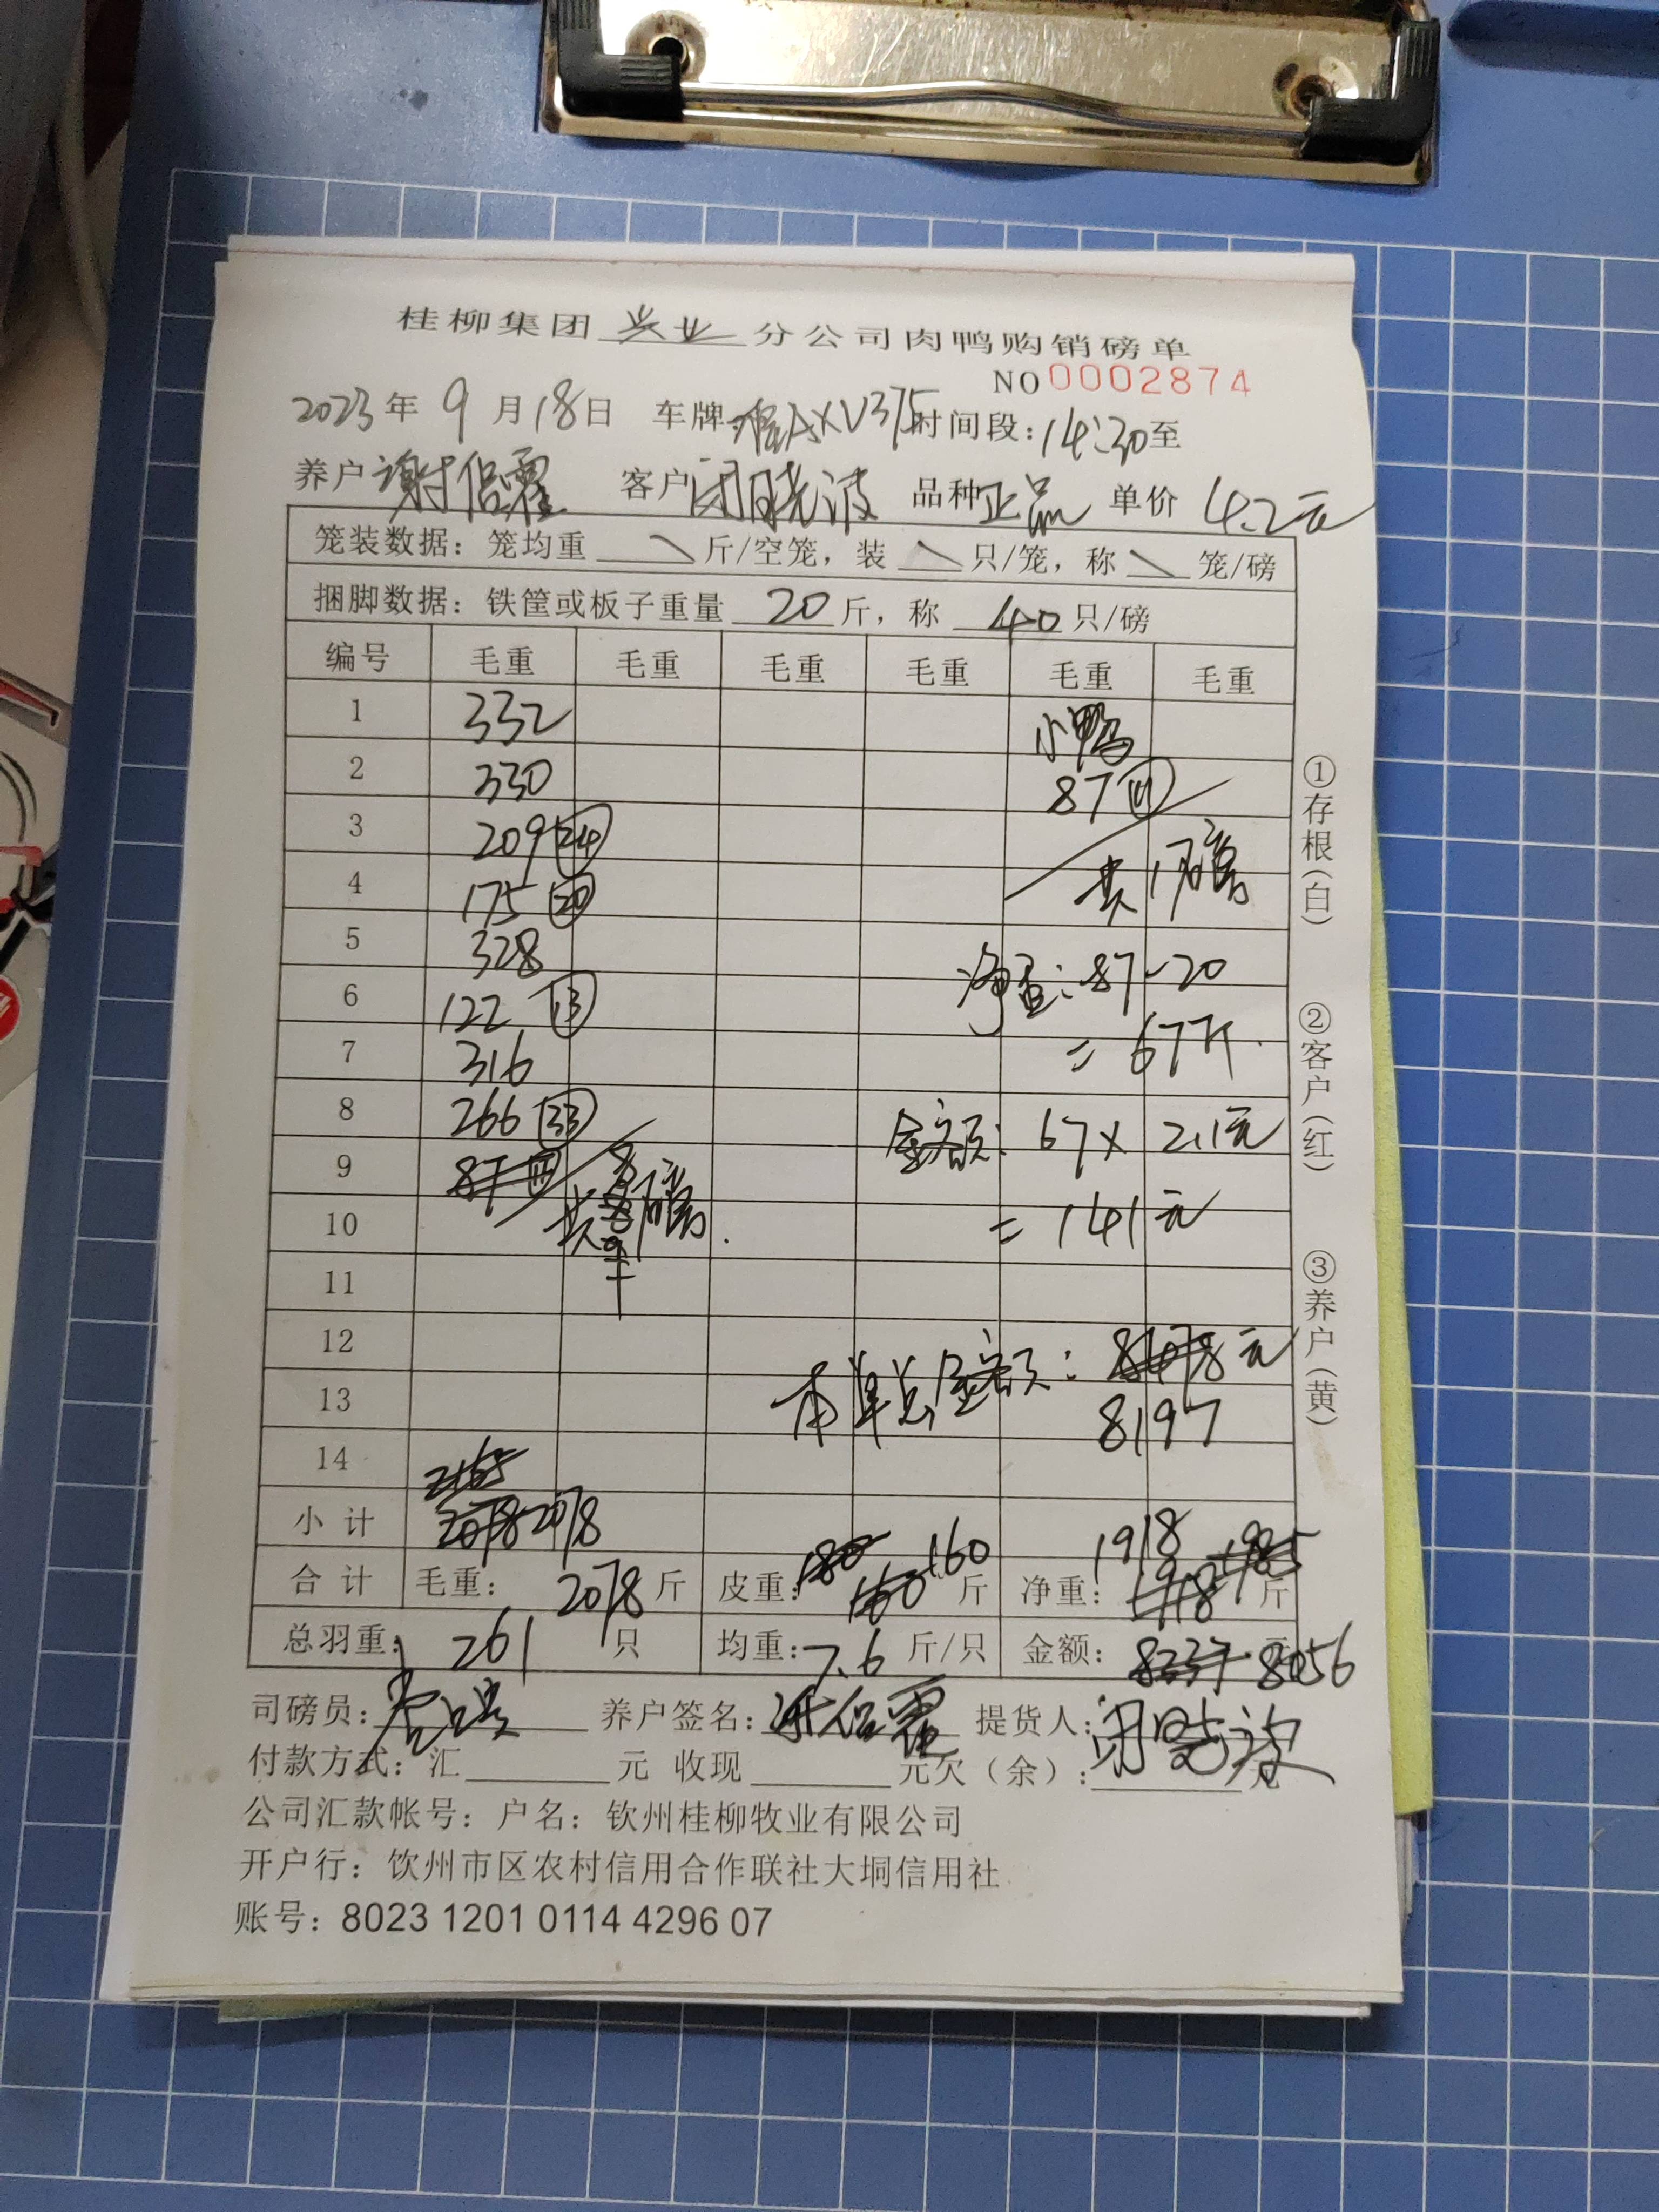 桂柳集团 兴业 分公司肉鸭购销磅单
NO 0002874
2023年 9月18日 车牌 AXV375 时间段：14:30至
养户 谢信霍 客户 闭晓波 品种 正品 单价 4.2元
笼装数据：笼均重 \ 斤/空笼，装 \ 只/笼，称 \ 笼/磅
捆脚数据：铁筐或板子重量 20 斤，称 40 只/磅
编号 毛重 毛重 毛重 毛重 毛重 毛重
1 332 小鸭
2 330 87 ⑪
3 209 ㉔ 共1磅
4 175 ⑳
5 328 净重：87-20
6 122 ⑬ =67斤.
7 316
8 266 ㉝ 金额：67× 2.1元
9 87 ⑪ 共 8 磅.
10 =141元
11
12 本单总金额：8078元
13 8197
14 2165
小计 2078 2078
合计 毛重：2078 斤 皮重：180 160 160 斤 净重：1918 1918 1985 斤
总羽重：261 只 均重：7.6 斤/只 金额：8337 8056 元
司磅员： 养户签名：谢信霍 提货人：闭晓波
付款方式：汇 元 收现 元欠（余）： 元
公司汇款帐号：户名：钦州桂柳牧业有限公司
开户行：饮州市区农村信用合作联社大垌信用社
账号：8023 1201 0114 4296 07
①存根（白）
②客户（红）
③养户（黄）